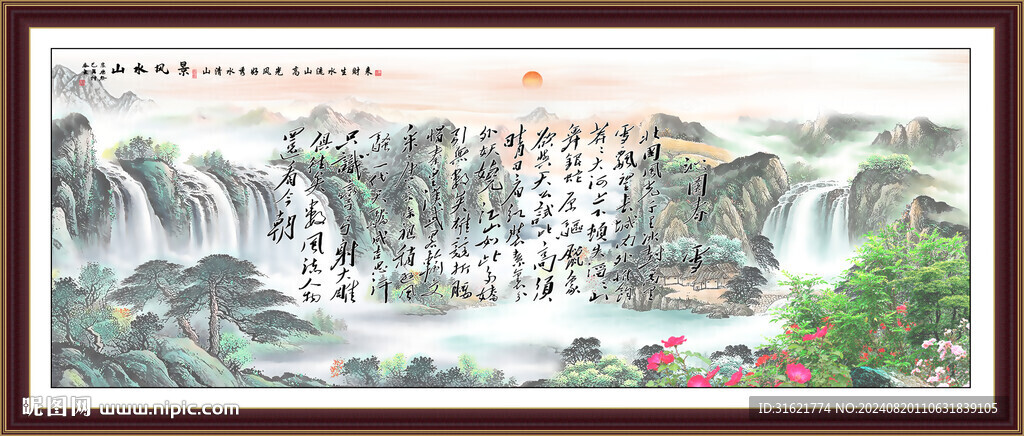 山水风景
山清水秀好风光 高山流水生财来
沁园春 雪
北国风光千里冰封万里
雪飘望长城内外惟余
莽莽大河上下顿失滔滔山
舞银蛇原驱腊象
欲与天公试比高须
晴日看红装素裹分
外妖娆江山如此多娇
引无数英雄竞折腰
惜秦皇汉武略输文
采唐宗宋祖稍逊风
骚一代天骄成吉思汗
只识弯弓射大雕
俱往矣数风流人物
还看今朝
昵图网 www.nipic.com
ID:31621774 NO:20240820110631839105